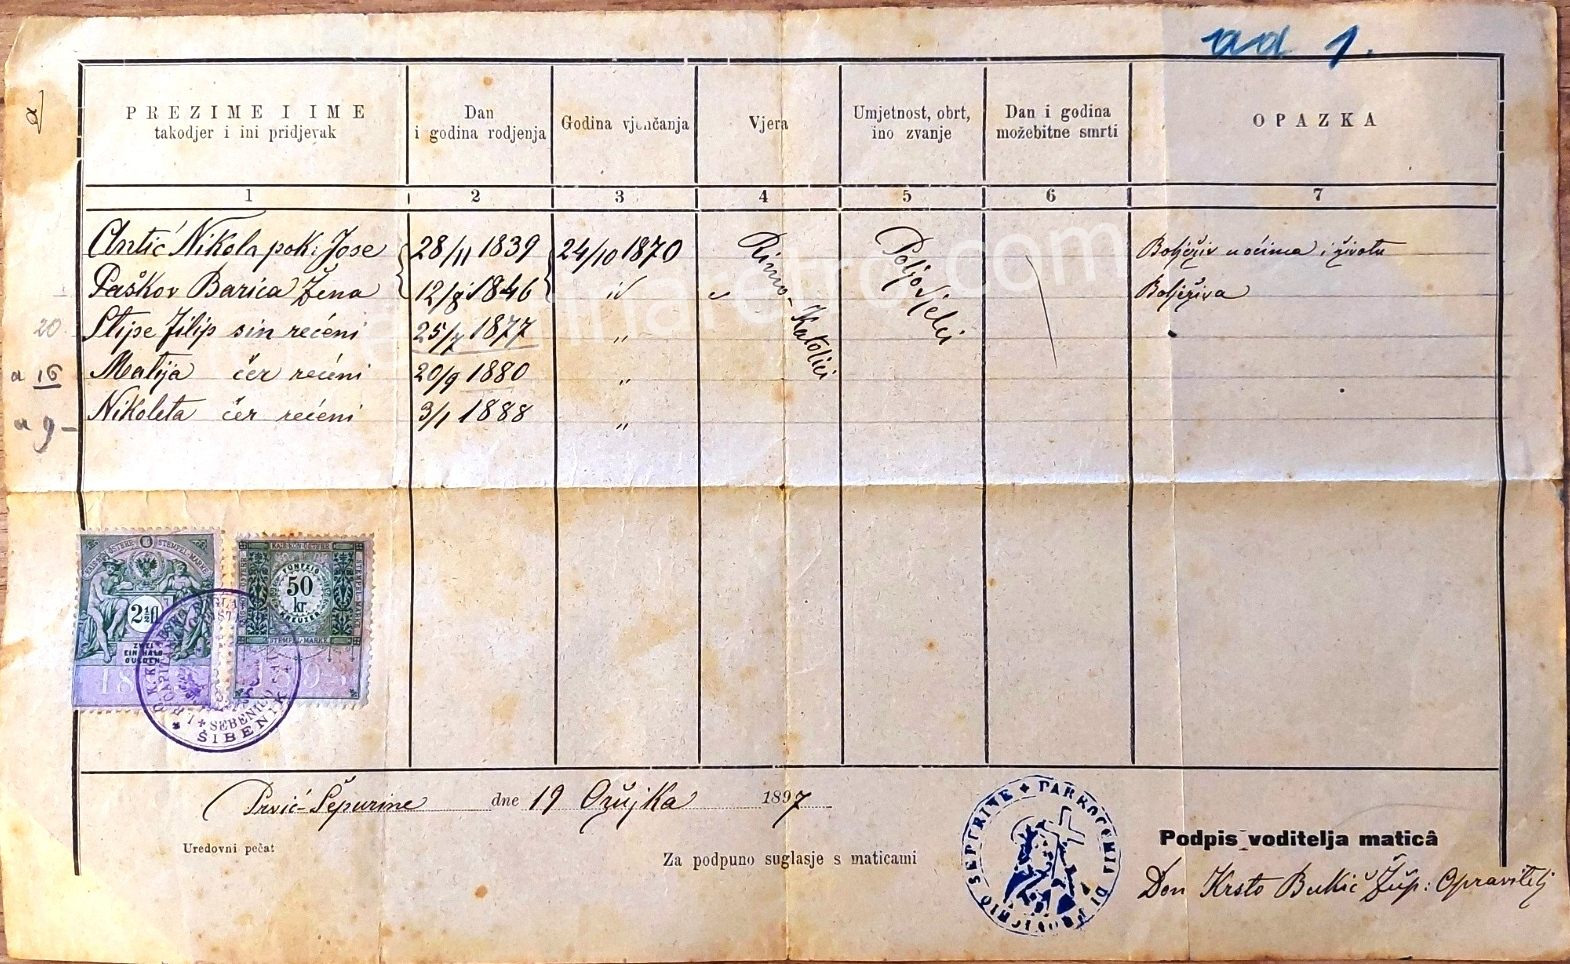 ad 1.
a
PREZIME I IME
takodjer i ini pridjevak
Dan
i godina rodjenja
Godina vjenčanja
Vjera
Umjetnost, obrt,
ino zvanje
Dan i godina
možebitne smrti
OPAZKA
1 2 3 4 5 6 7
Antić Nikola pok: Jose 28/11 1839 24/10 1870 Rimo- Poljo Boležljiv u očima i životu
Paškov Barica Žena 12/8 1846 id Katolici djelci Boležljiva
20 Stipe Filip sin rečeni 25/7 1877 "
a 16 Matija čer rečeni 20/9 1880 "
a 9- Nikoleta čer rečeni 3/1 1888 "
STEMPEL-MARKE
2½
ZWEI
EIN HALB
GULDEN
18
KAIS.KÖN.ÖSTERR.
FÜNFZIG
50
kr.
KREUZER
STEMPEL-MARKE
SEBENICO
ŠIBENIK
Prvić-Šepurine dne 19 Ožujka 1897
Uredovni pečat
Za podpuno suglasje s maticami
PARROCCHIA DI PROVICHIO SEPURINE
Podpis voditelja maticâ
Don Krsto Bukić Žup: Opravitelj